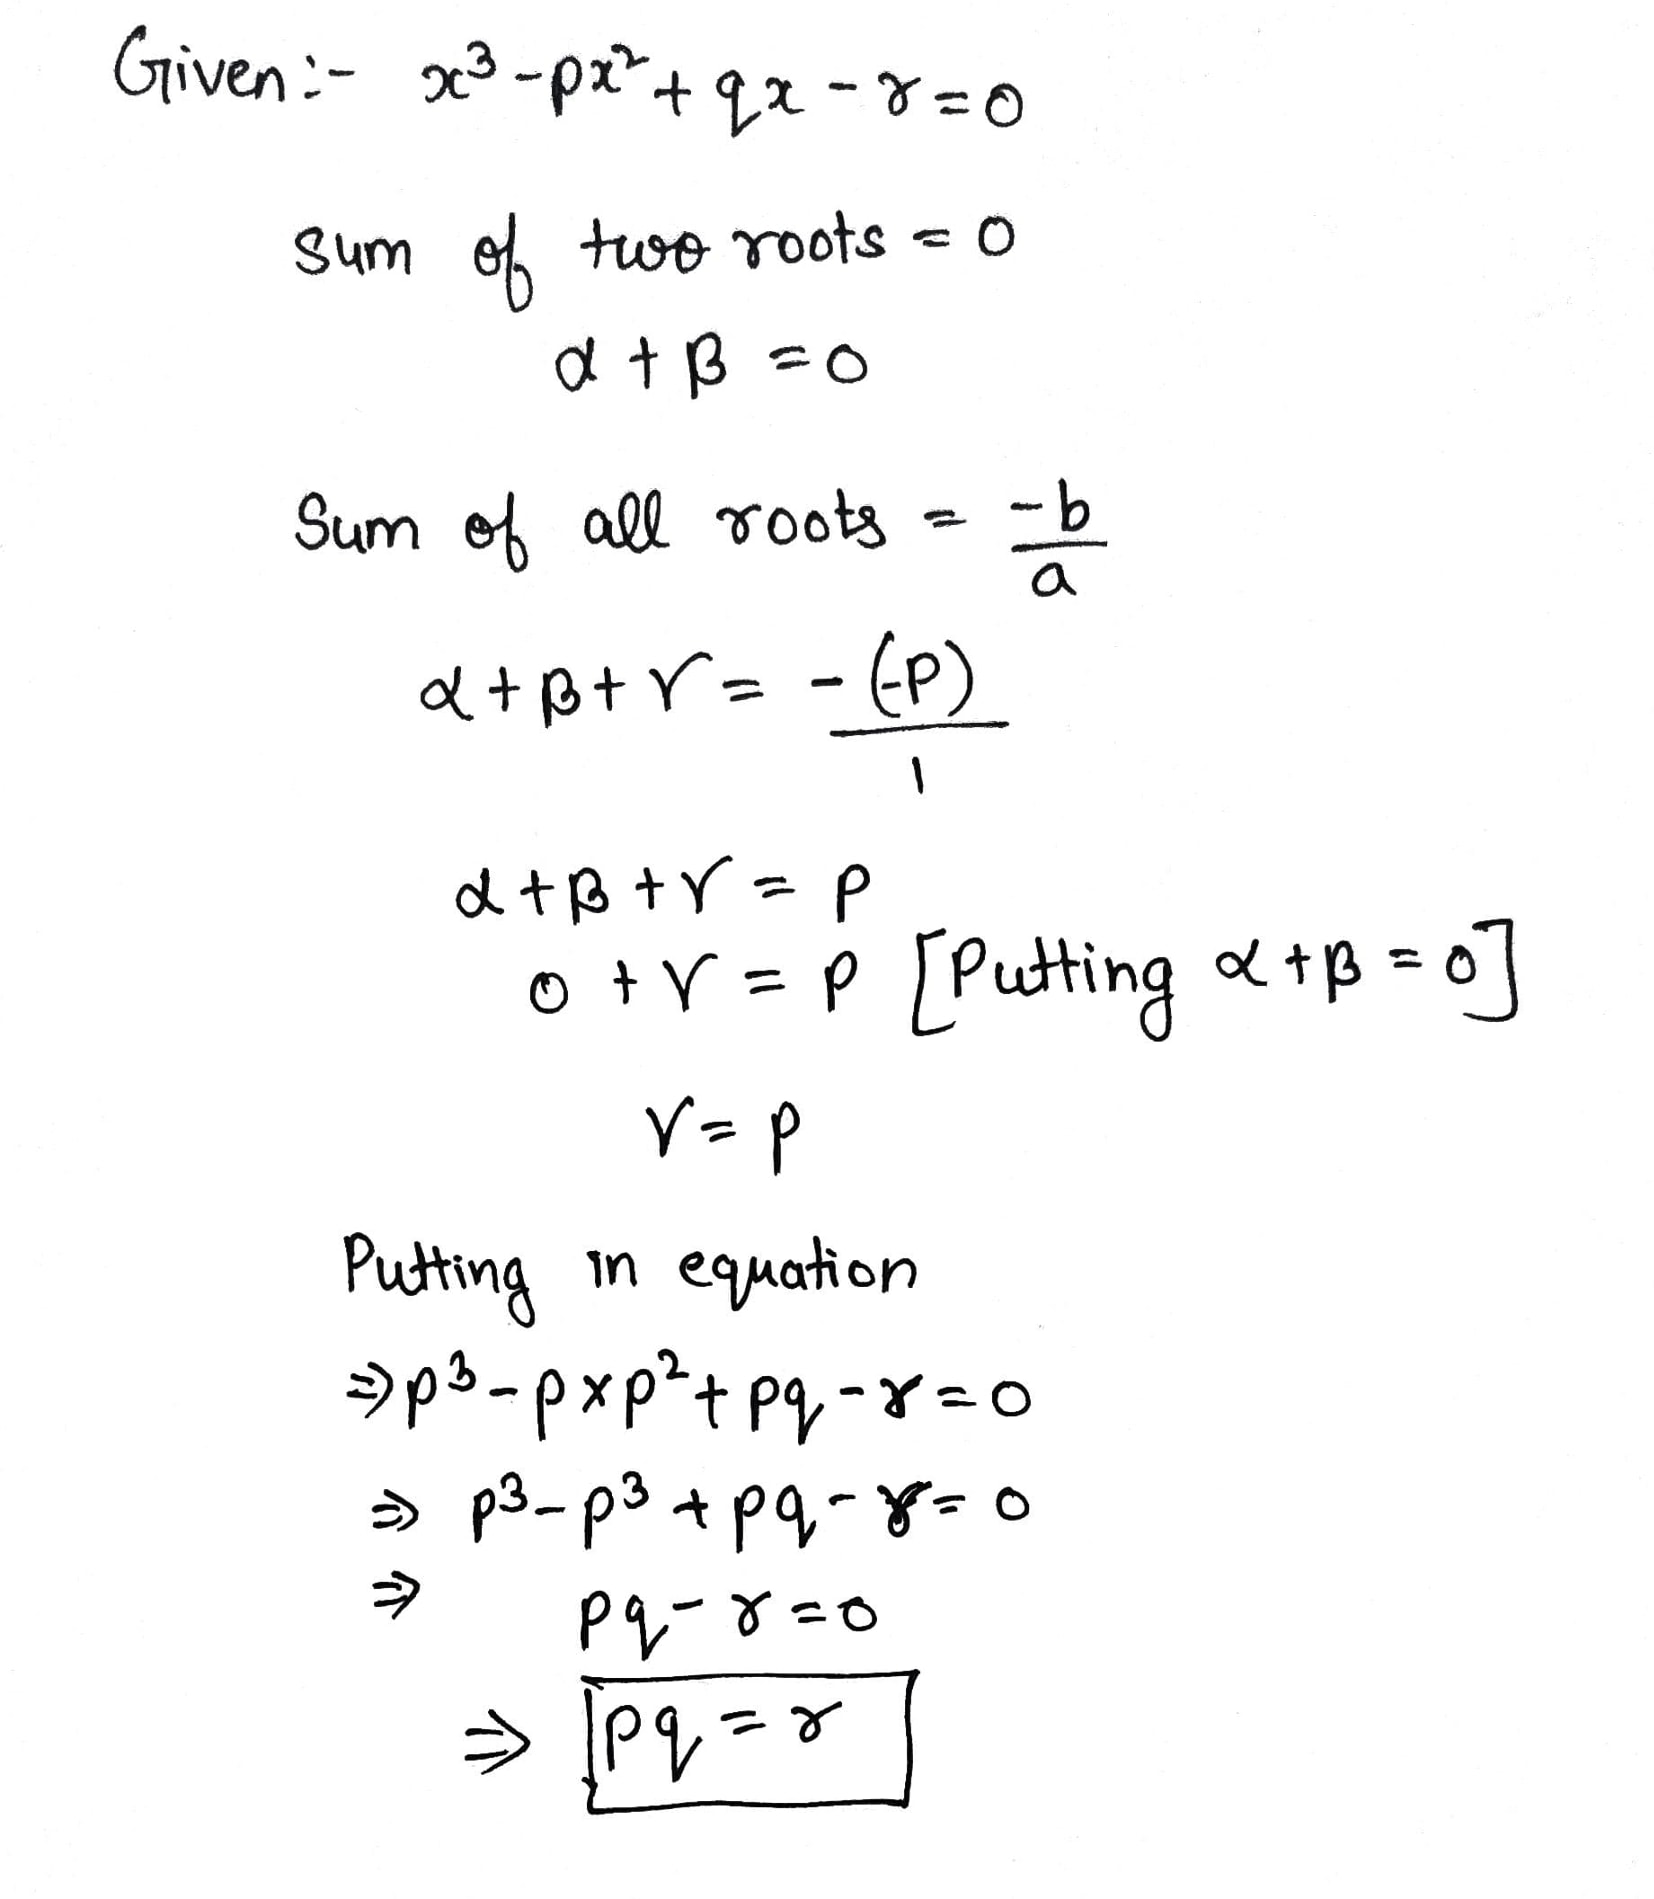 Given:- x³-px²+qx-r=0
Sum of two roots = 0
α+β=0
Sum of all roots = -b/a
α+β+γ = -(-p)/1
α+β+γ = p
0+γ = p [Putting α+β=0]
γ=p
Putting in equation
⇒p³-p×p²+pq-r=0
⇒ p³-p³+pq-r=0
⇒ pq-r=0
⇒ pq=r